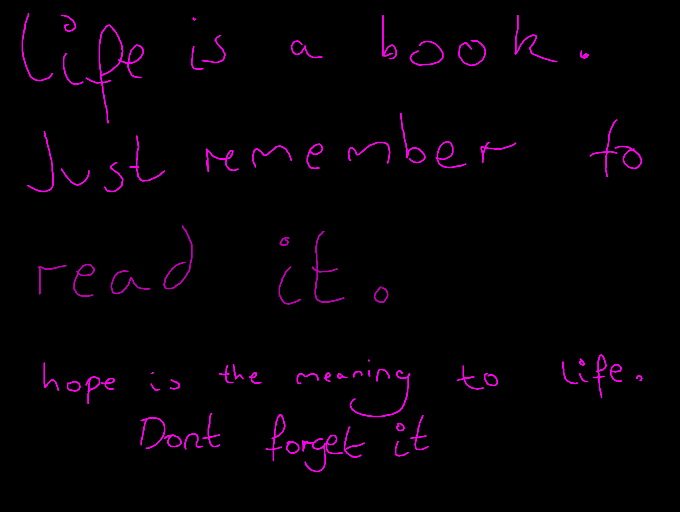 life is a book.
Just remember to
read it.
hope is the meaning to life.
Dont forget it